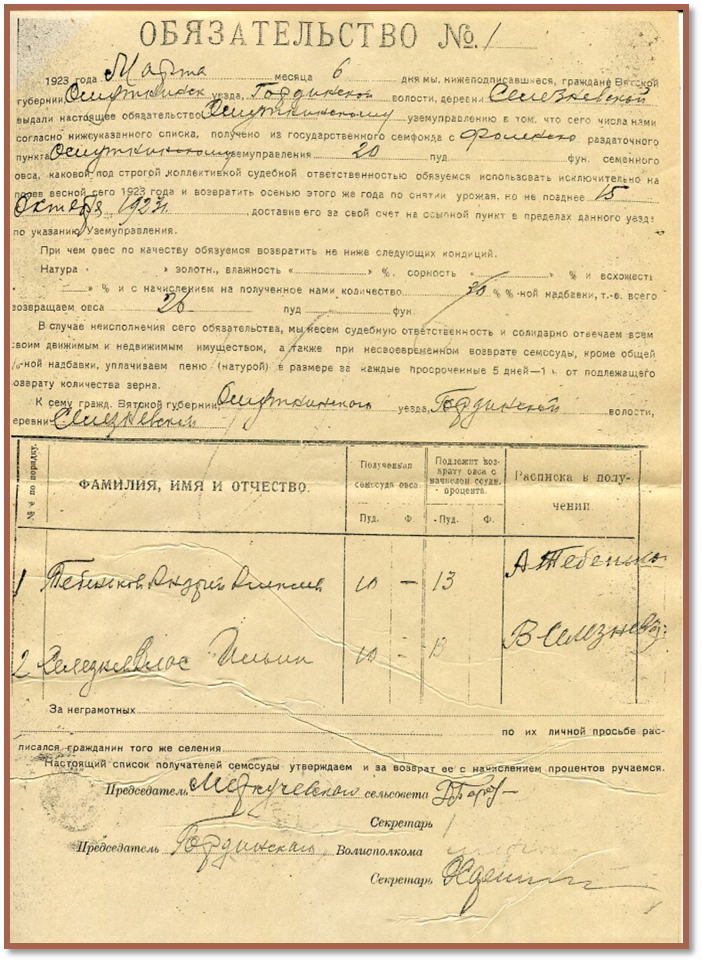 ОБЯЗАТЕЛЬСТВО № 1
1923 года Марта месяца 6 дня мы, нижеподписавшиеся, граждане Вятской
губернии, уезда, Гординской волости, деревн Селезневской
выдали настоящее обязательство уземуправлению в том, что сего числа нами
согласно нижеуказанного списка, получено из государственного семфонда с раздаточного
пункта уземуправления 20 пуд фун. семенного
овса, каковой под строгой коллективной судебной ответственностью обязуемся использовать исключительно на
посев весной сего 1923 года и возвратить осенью этого же года по снятии урожая, но не позднее 15
Октября 1923 г. доставив его за свой счет на ссыпной пункт в пределах данного уезда
по указанию Уземуправления.
При чем овес по качеству обязуемся возвратить не ниже следующих кондиций.
Натура » золотн., влажность « » %, сорность « » % и всхожесть
» % и с начислением на полученное нами количество 30 % %-ной надбавки, т.-е. всего
возвращаем овса 26 пуд фун.
В случае неисполнения сего обязательства, мы несем судебную ответственность и солидарно отвечаем всем
своим движимым и недвижимым имуществом, а также при несвоевременном возврате семссуды, кроме общей
%-ной надбавки, уплачиваем пеню (натурой) в размере за каждые просроченные 5 дней—1 % от подлежащего
возврату количества зерна.
К сему гражд. Вятской губернии, уезда, Гординской волости,
деревни Селезневской
№ № по порядку.
ФАМИЛИЯ, ИМЯ И ОТЧЕСТВО.
Полученная семссуда овса.
Подлежит возврату овса с начислен ссудн. процента.
Расписка в получении
Пуд. Ф. Пуд. Ф.
1 Тебеньков Андрей 10 — 13 А Тебеньков
2 Селезнев Влас Ильич 10 - 13 В Селезнев
За неграмотных
по их личной просьбе рас-
писался гражданин того же селения
Настоящий список получателей семссуды утверждаем и за возврат ее с начислением процентов ручаемся.
Председатель сельсовета
Секретарь
Председатель Гординского Волисполкома
Секретарь